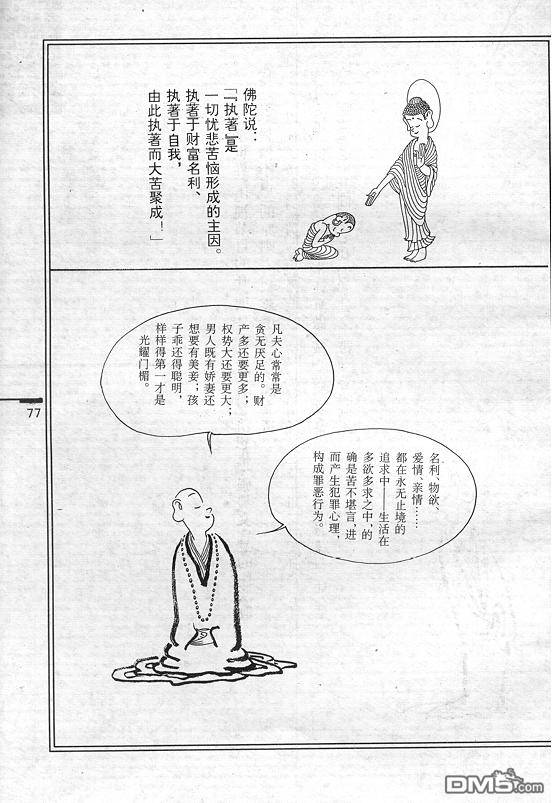 佛陀说：
「『执著』是
一切忧悲苦恼形成的主因。
执著于财富名利、
执著于自我，
由此执著而大苦聚成！」
凡夫心常常是
贪无厌足的。财
产多还要更多；
权势大还要更大；
男人既有娇妻还
想要有美妾；孩
子乖还得聪明，
样样得第一才是
光耀门楣。
名利、物欲、
爱情、亲情……
都在永无止境的
追求中——生活在
多欲多求之中，的
确是苦不堪言，进
而产生犯罪心理，
构成罪恶行为。
77
DM5.com